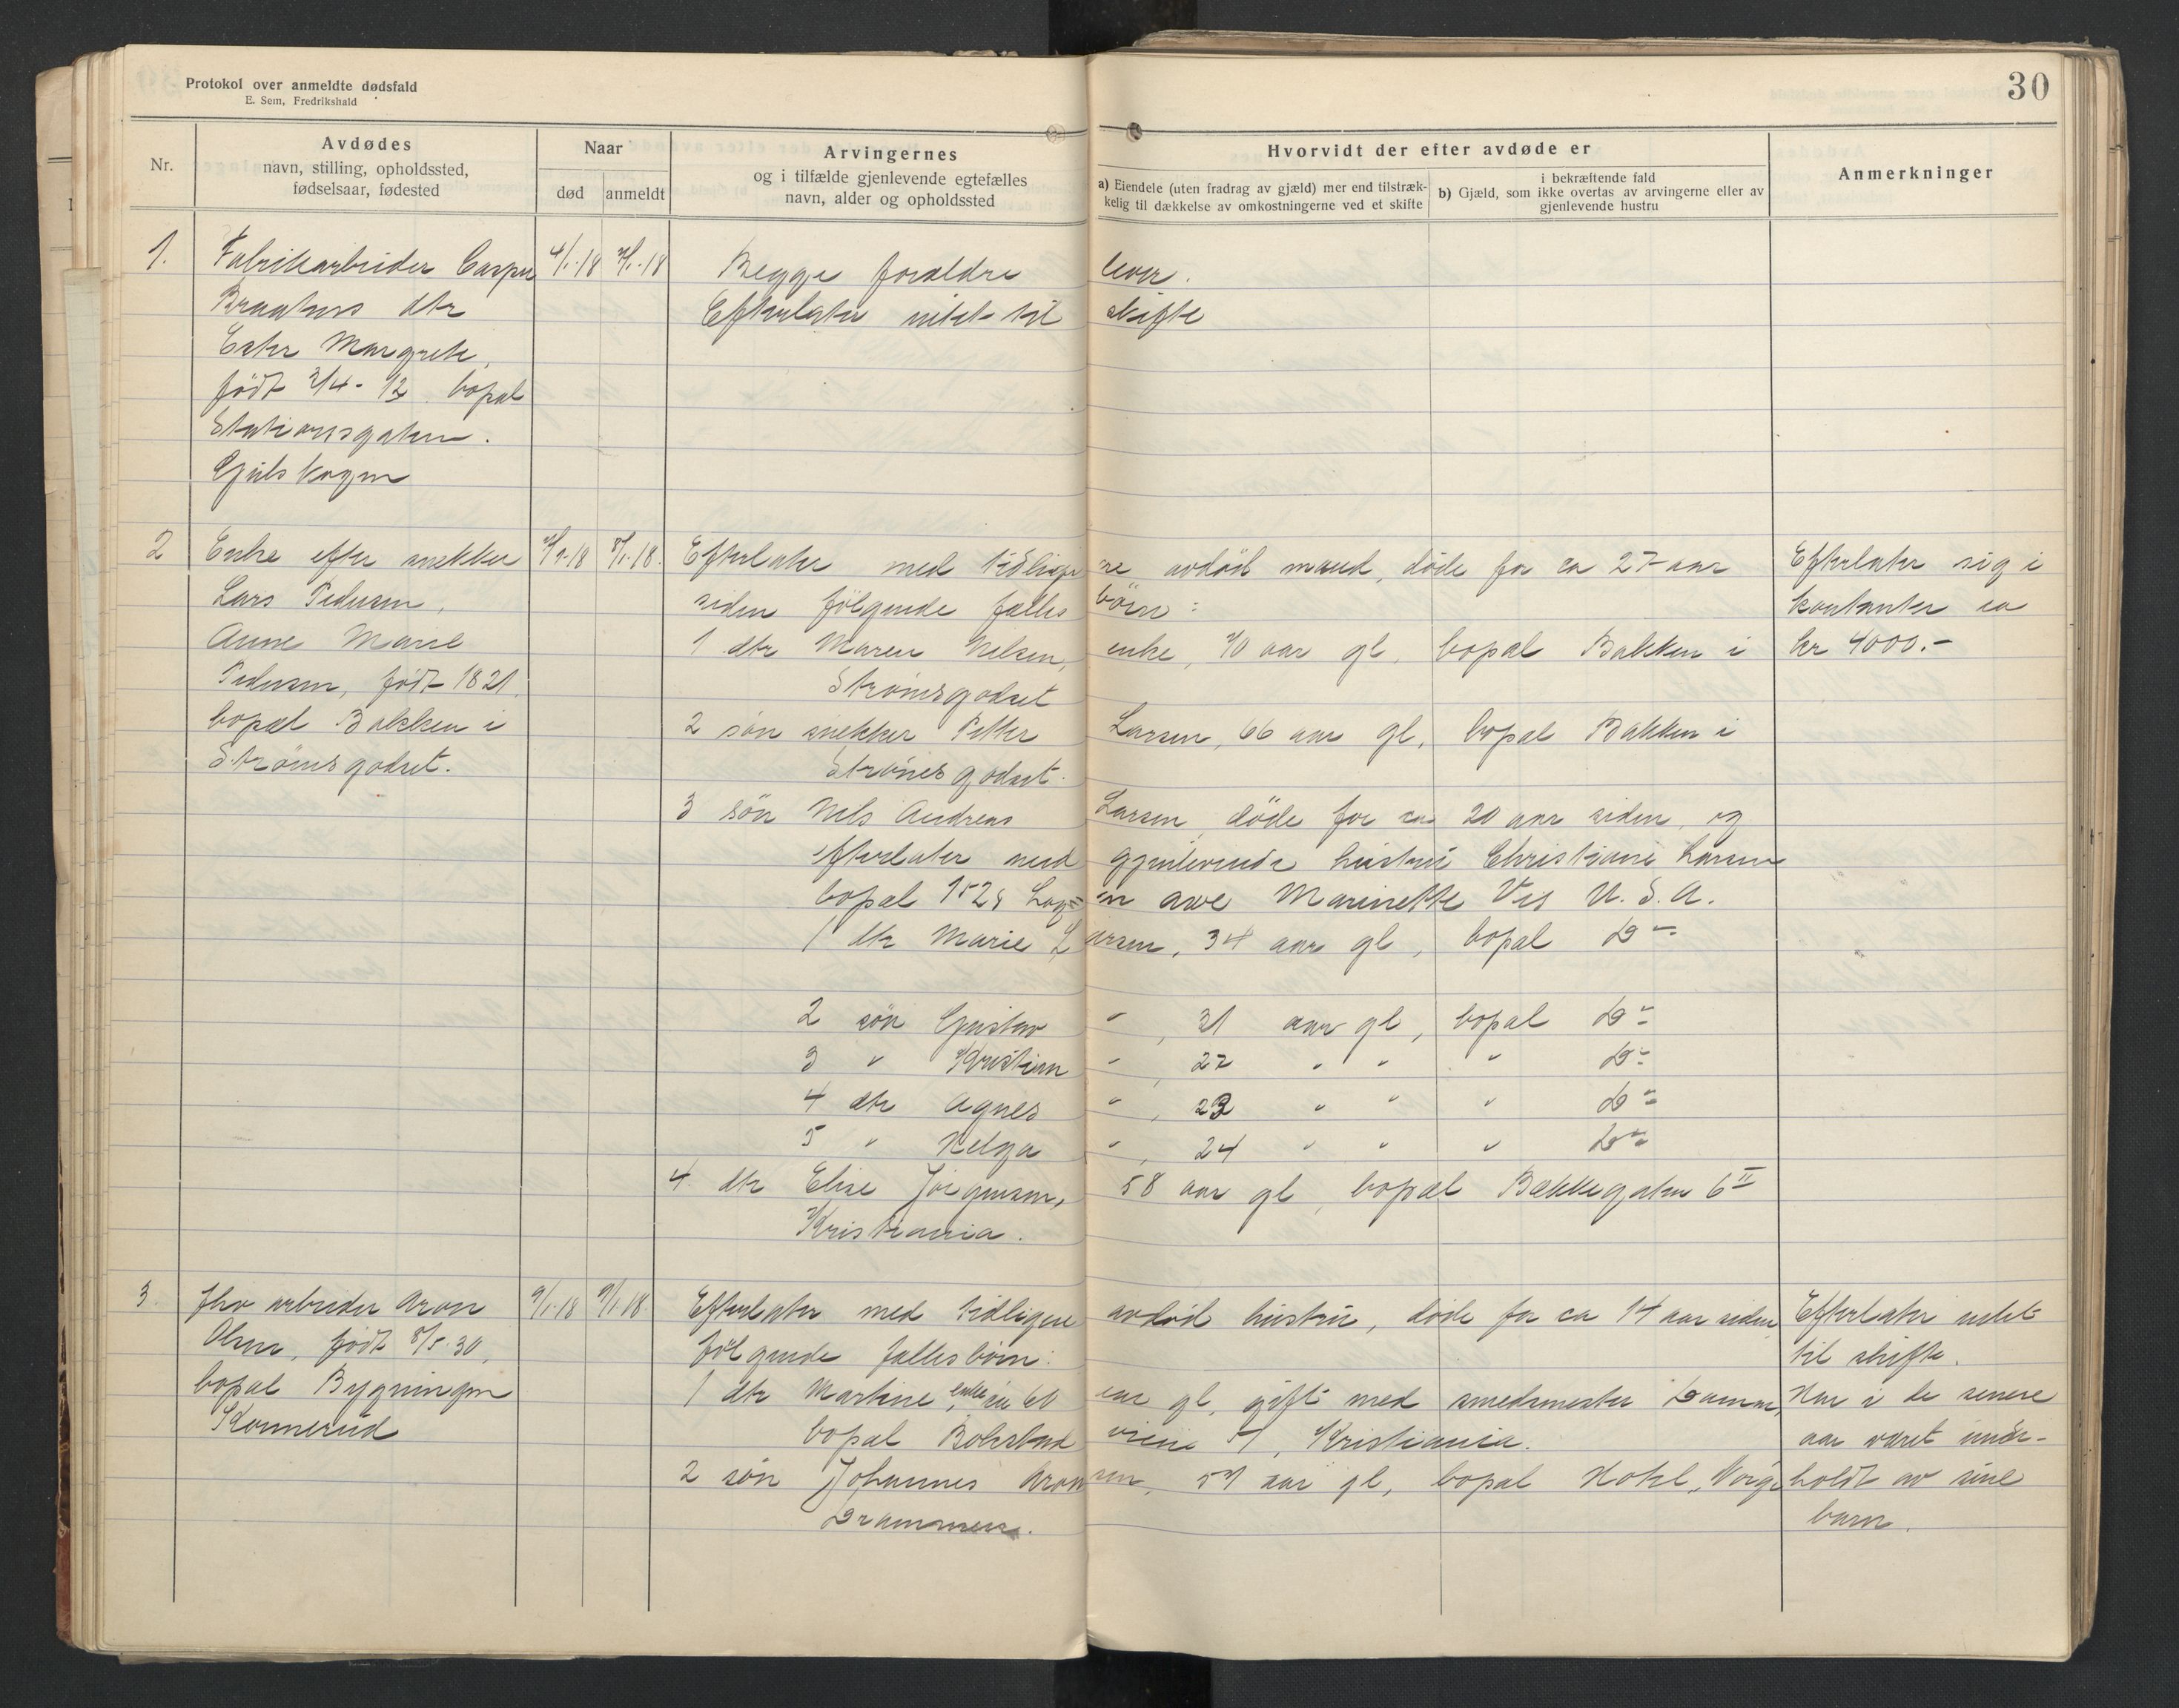 Protokol over anmeldte dødsfald
E. Sem, Fredrikshald
30
Nr.
Avdødes
navn, stilling, opholdssted,
fødselsaar, fødested
Naar
død
anmeldt
Arvingernes
og i tilfælde gjenlevende egtefælles
navn, alder og opholdssted
Hvorvidt der efter avdøde er
a) Eiendele (uten fradrag av gjæld) mer end tilstræk-
kelig til dækkelse av omkostningerne ved et skifte
i bekræftende fald
b) Gjæld, som ikke overtas av arvingerne eller av
gjenlevende hustru
Anmerkninger
1. Fabrikarbeider Casper 4/1-18 7/1-18 Begge forældre lever.
Braatens dtr Efterlater intet til skifte
Ester Margrete,
født 2/4-12. bopæl
Stationsgaten.
Gulskogen
2 Enke efter snekker 8/1-18 Efterlater med tidligere avdød mand, døde for ca 27 aar Efterlater sig i
Lars Pedersen, siden følgende fælles børn: kontanter ca
Anne Marie 1 dtr Maren Nelsen, enke, 70 aar gl, bopæl Bakken i kr 4000.-
Pedersen, født 1821, Strømsgodset
bopæl Bakken i 2 søn snekker Petter Larsen, 66 aar gl, bopæl Bakken i
Strømsgodset. Strømsgodset.
3 søn Nels Andreas Larsen døde for ca 20 aar siden, og
efterlater med gjenlevende hustru Christiane Larsen
bopæl 1528 Logan ave Marinette Vis U.S.A.
1 dtr Marie Larsen, 34 aar gl, bopæl Do
2 søn Gustav " , 31 aar gl, bopæl Do
3 " Kristian " , 27 " " " Do
4 dtr Agnes " , 23 " " " Do
5 " Helga " , 24 " " " Do
4 dtr Elise Jørgensen, 58 aar gl, bopæl Bakkegaten 6 II
Kristiania.
3. Fhv arbeider Aron 9/1-18 9/1-18 Efterlater med tidligere avdød hustru, døde for ca 14 aar siden Efterlater intet
Olsen, født 8/5-30, følgende fællesbørn: til skifte.
bopæl Bygningen 1 dtr Martine, 60 aar gl, gift med smedmester Har i de senere
Konnerud bopæl Kristiania. aar været under-
2 søn Johannes Aronsen, 57 aar gl, bopæl Hotel Norge holdt av sine
Drammen. barn.